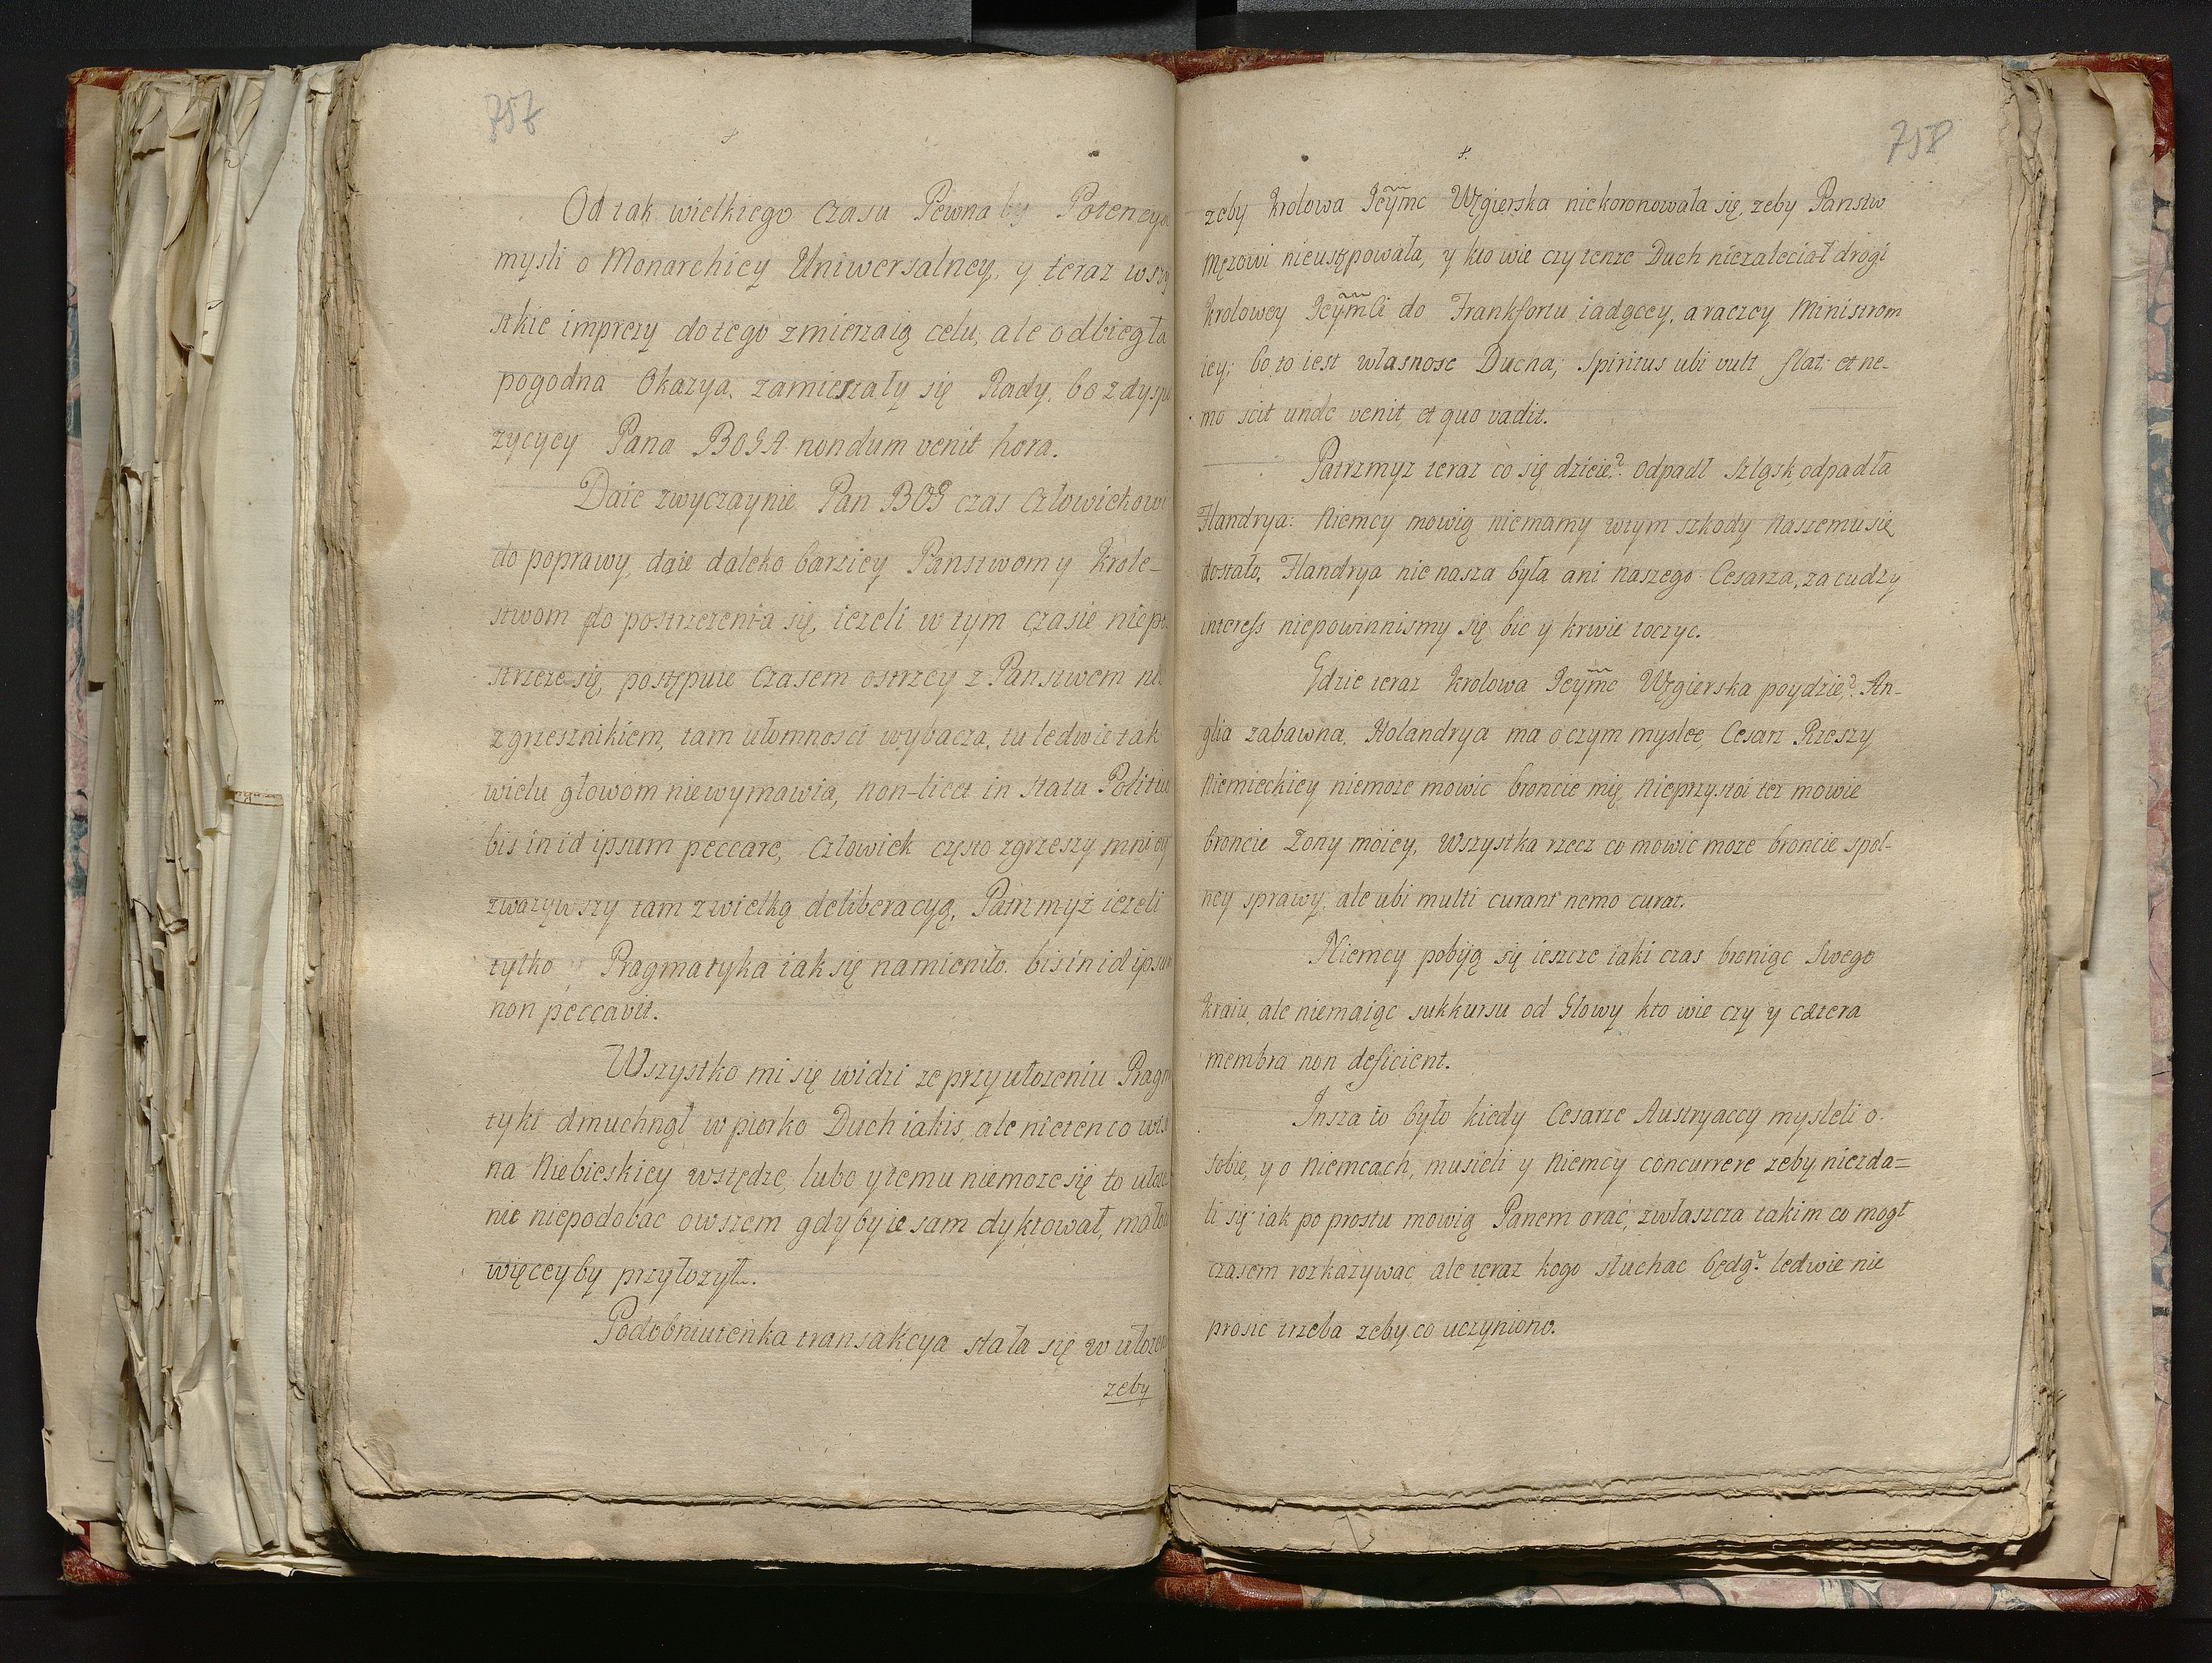 757
Od tak wielkiego Czasu Pewna by Potencya
mysli o Monarchiey Uniwersalney, y teraz wszy
stkie imprezy do tego zmierzaią celu, ale odbiegła
pogodna Okazya, zamieszały się Rady, bo z dyspo
zycyey Pana BOGA nondum venit hora.
Daie zwyczaynie Pan BOG czas Człowiekowi
do poprawy, daie daleko barziey Panstwom y Krole-
stwom do postrzezenia się, iezeli w tym czasie niepo
strzeze się, postępuie Czasem ostrzey z Panstwem niz
z grzesznikiem, tam ułomnosci wybacza, tu ledwie tak
wielu głowom niewymawia, non-licet in statu Politico
bis in id ipsum peccare, Człowiek często zgrzeszy mniey
zwazywszy tam z wielką deliberacyą, Patrzmyż iezeli
tylko Pragmatyka iak się namieniło. bis in id ipsum
non peccavit.
Wszystko mi się widzi ze przy ułozeniu Pragma
tyki dmuchnął w piorko Duch iakis, ale nieten co wis
na Niebieskiey wstędze, lubo y temu niemoze się to ułoze
nie niepodobac owszem gdyby ie sam dyktował, mało
więcey by przyłozył.
Podobniutenka transakcya stała się w ułozen
zeby
758
zeby Krolowa Jeymc Węgierska niekoronowała się, zeby Panstw
Męzowi nieustępowała, y kto wie czy tenze Duch niezaleciał drogi
Krolowey Jeymci do Frankfortu iadącey, a raczey Ministrom
iey; bo to iest własnosc Ducha; Spiritus ubi vult flat: et ne-
mo scit unde venit, et quo vadit.
Patrzmyz teraz co się dzieie? Odpadł Szląsk, odpadła
Flandrya: Niemcy mowią niemamy w tym szkody Naszemu się
dostało, Flandrya nie nasza była ani Naszego Cesarza, za cudzy
interess niepowinnismy się bic y krwie toczyc.
Gdzie teraz Krolowa Jeymc Węgierska poydzie? An-
glia zabawna, Holandrya ma o czym myslec, Cesarz Rzeszy
Niemieckiey niemoze mowic broncie mię, Nieprzystoi tez mowic
broncie Zony moiey, Wszystka rzecz co mowic moze broncie spol-
ney sprawy, ale ubi multi curant nemo curat.
Niemcy pobiją się ieszcze iaki czas broniąc Swego
kraiu, ale niemaiąc sukkursu od Głowy kto wie czy y cætera
membra non deficient.
Insza to było kiedy Cesarze Austryaccy mysleli o
sobie, y o Niemcach, musieli y Niemcy concurrere zeby niezda=
li się iak po prostu mowią Panem orac, zwłaszcza takim co mogł
czasem rozkazywac, ale teraz kogo słuchac będą? ledwie nie
prosic trzeba zeby co uczyniono.